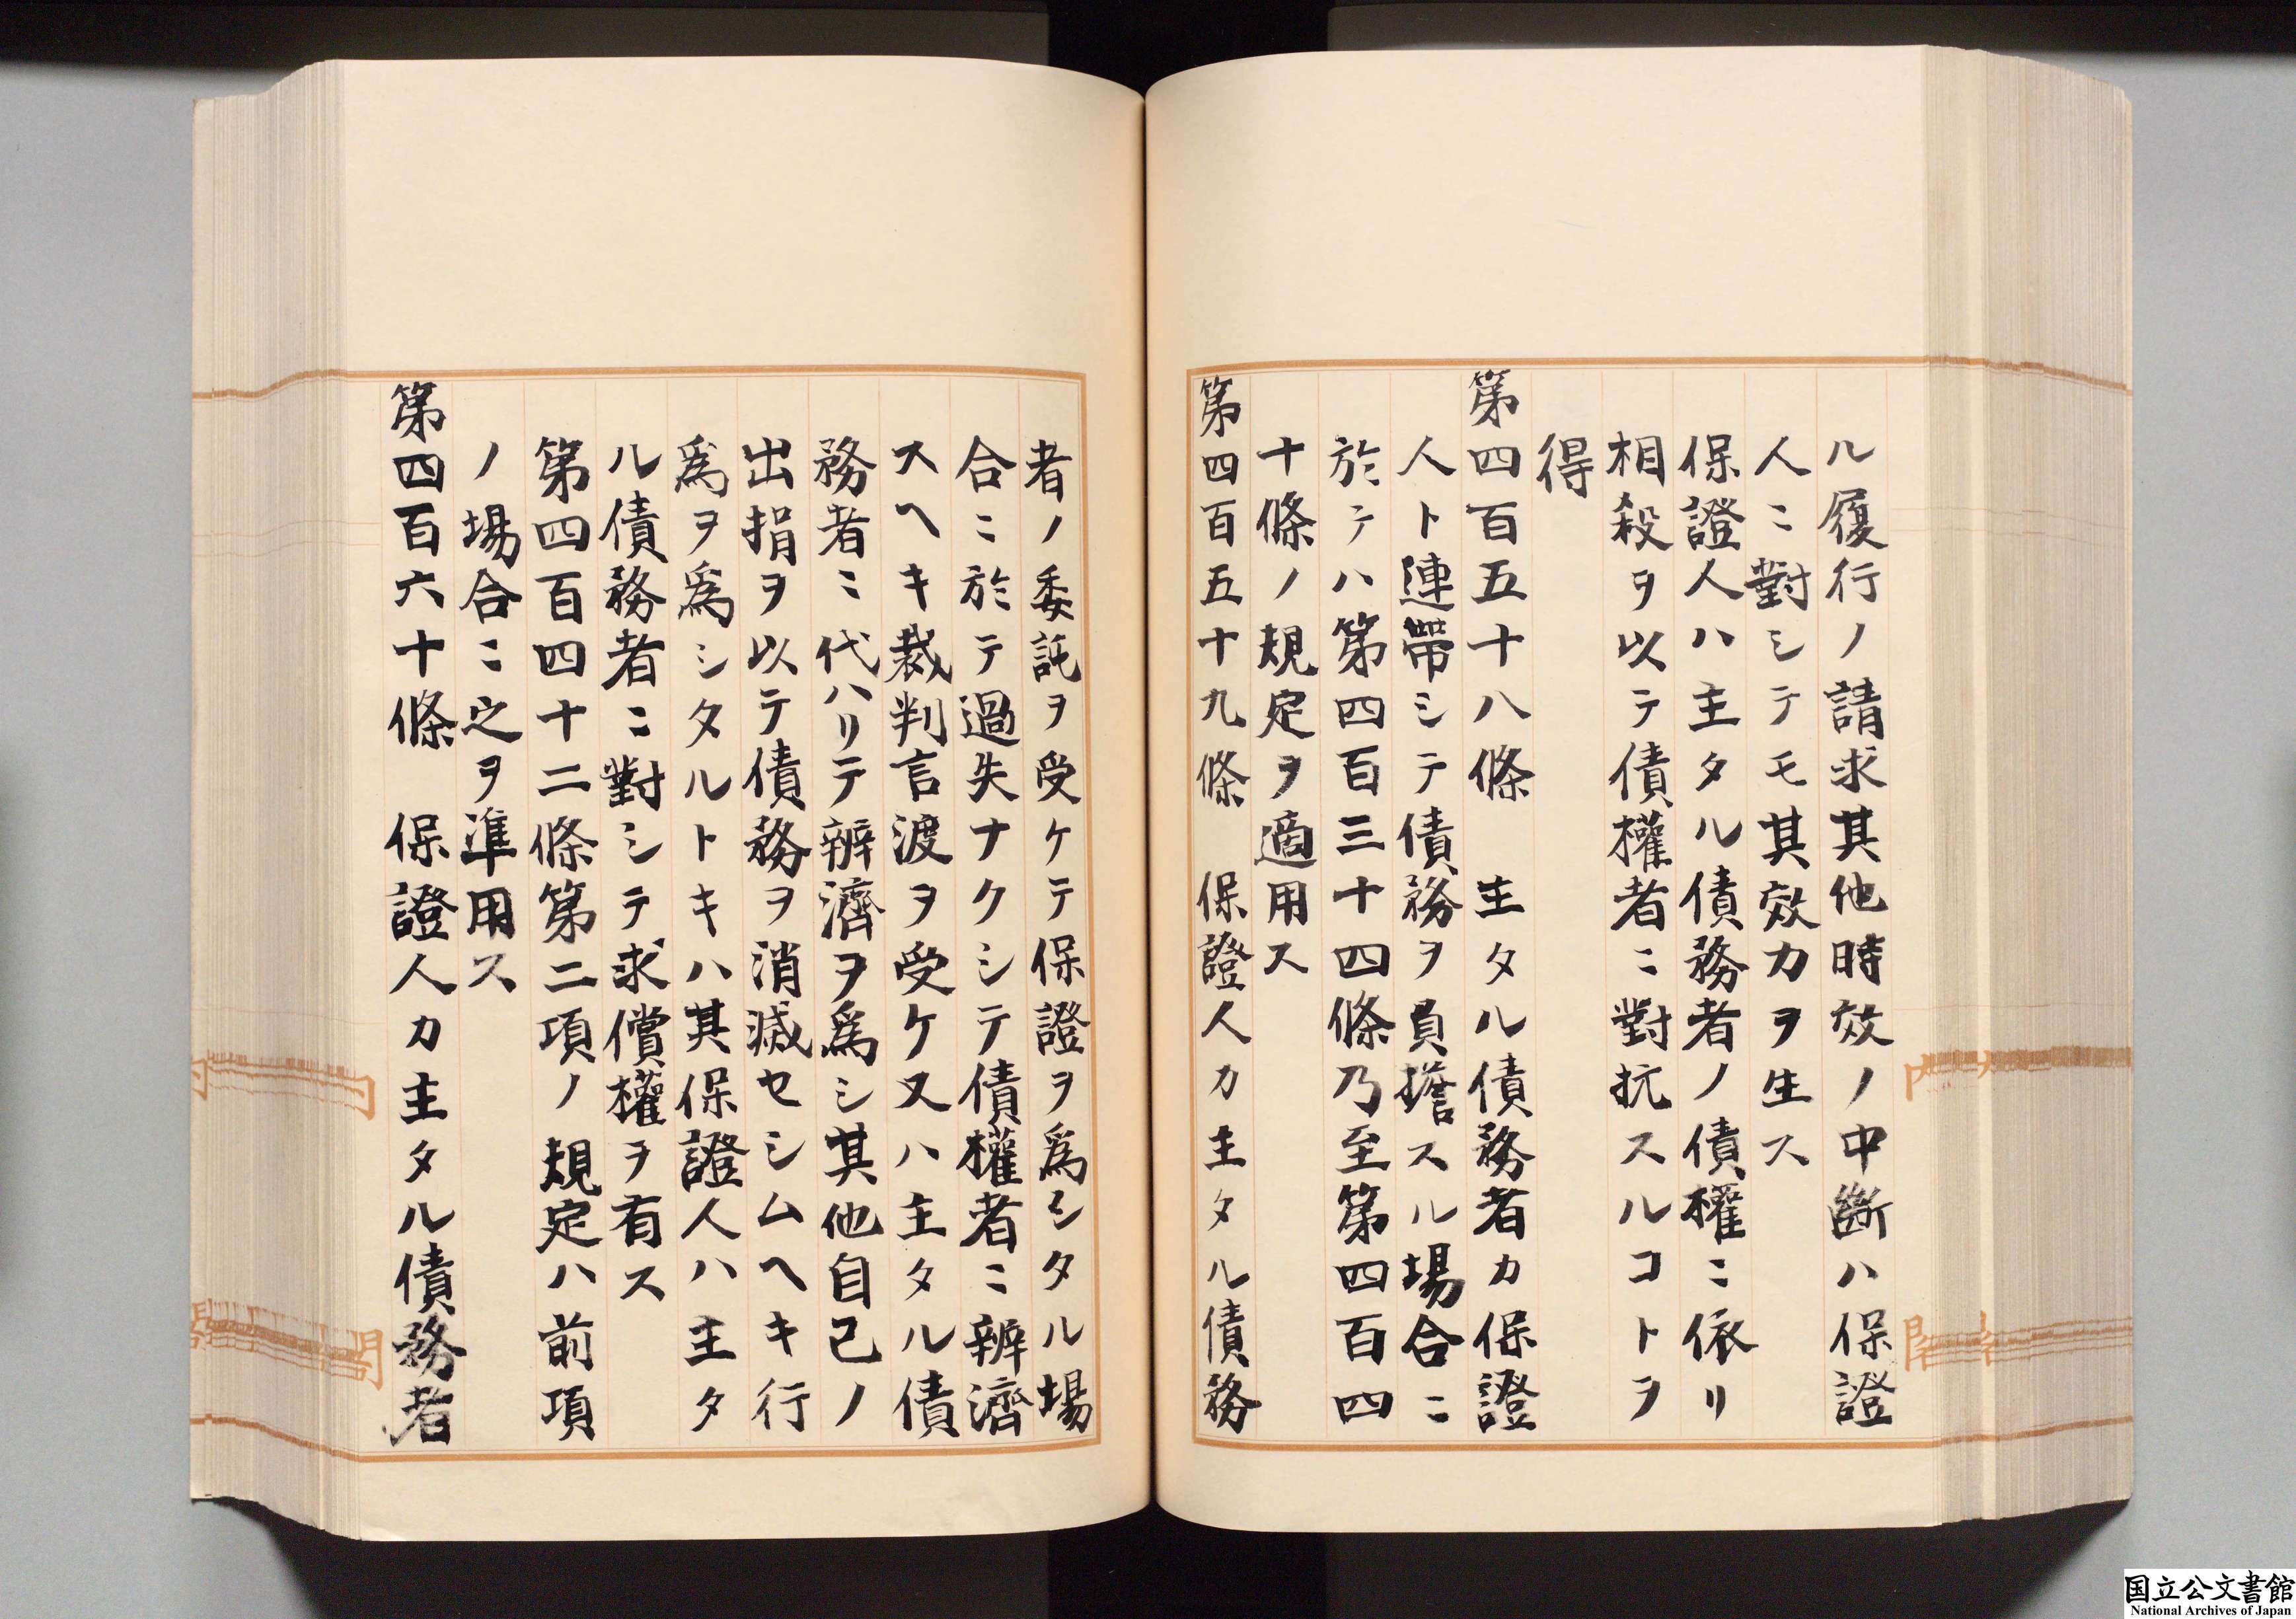 ル履行ノ請求其他時效ノ中斷ハ保證
人ニ對シテモ其效力ヲ生ス
保證人ハ主タル債務者ノ債權ニ依リ
相殺ヲ以テ債權者ニ對抗スルコトヲ
得
第四百五十八條　主タル債務者カ保證
人ト連帶シテ債務ヲ負擔スル場合ニ
於テハ第四百三十四條乃至第四百四
十條ノ規定ヲ適用ス
第四百五十九條　保證人カ主タル債務
者ノ委託ヲ受ケテ保證ヲ爲シタル場
合ニ於テ過失ナクシテ債權者ニ辨濟
スヘキ裁判言渡ヲ受ケ又ハ主タル債
務者ニ代ハリテ辨濟ヲ爲シ其他自己ノ
出捐ヲ以テ債務ヲ消滅セシムヘキ行
爲ヲ爲シタルトキハ其保證人ハ主タ
ル債務者ニ對シテ求償權ヲ有ス
第四百四十二條第二項ノ規定ハ前項
ノ場合ニ之ヲ準用ス
第四百六十條　保證人カ主タル債務者
国立公文書館
National Archives of Japan